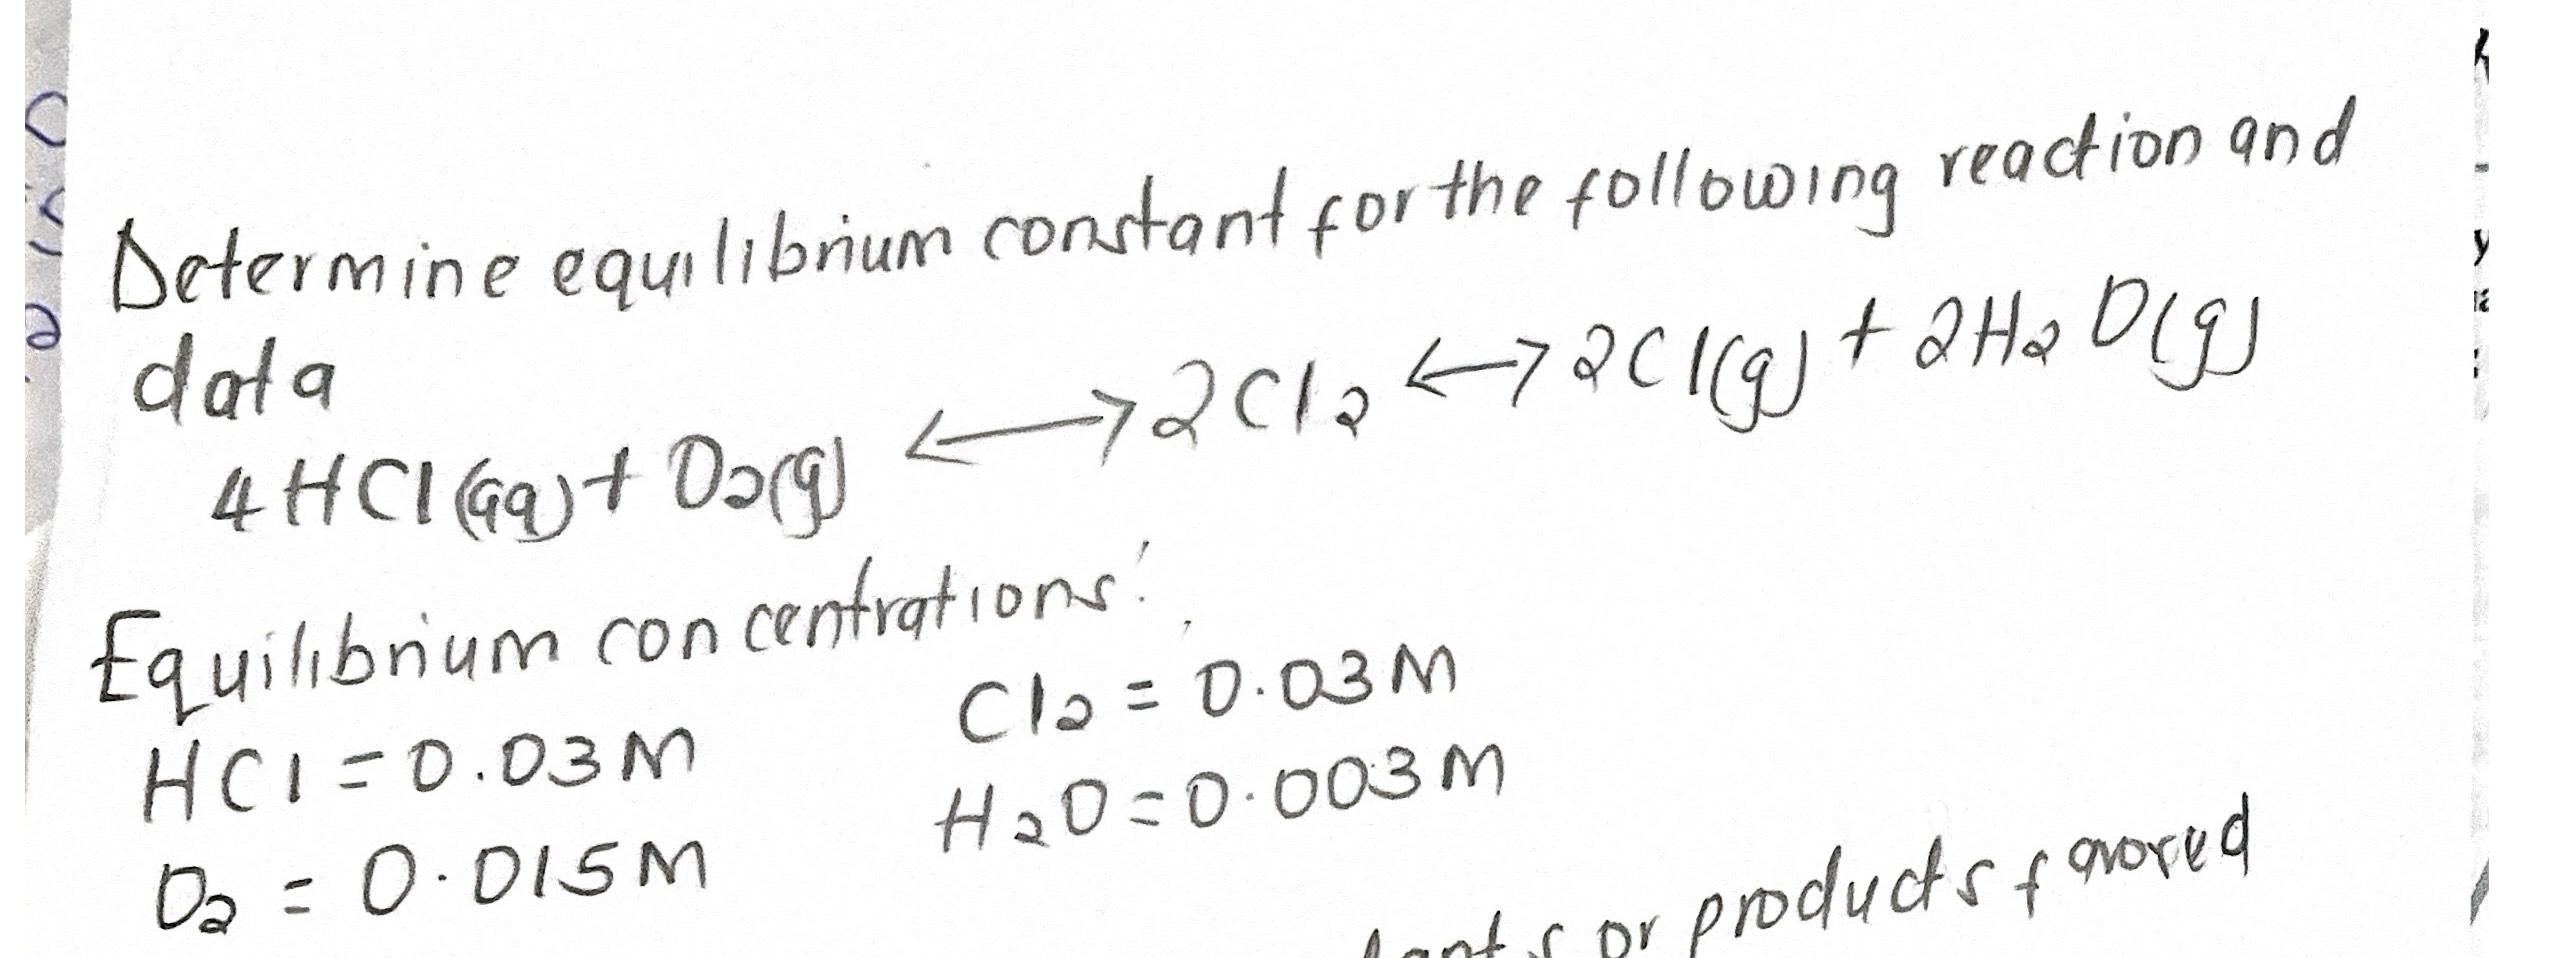 Determine equilibrium constant for the following reaction and
data
4HCl(aq) + O2(g) ⟷ 2Cl2 ⟷ 2Cl(g) + 2H2O(g)
Equilibrium concentrations:
HCl = 0.03M Cl2 = 0.03M
O2 = 0.015M H2O = 0.003M
or products favored